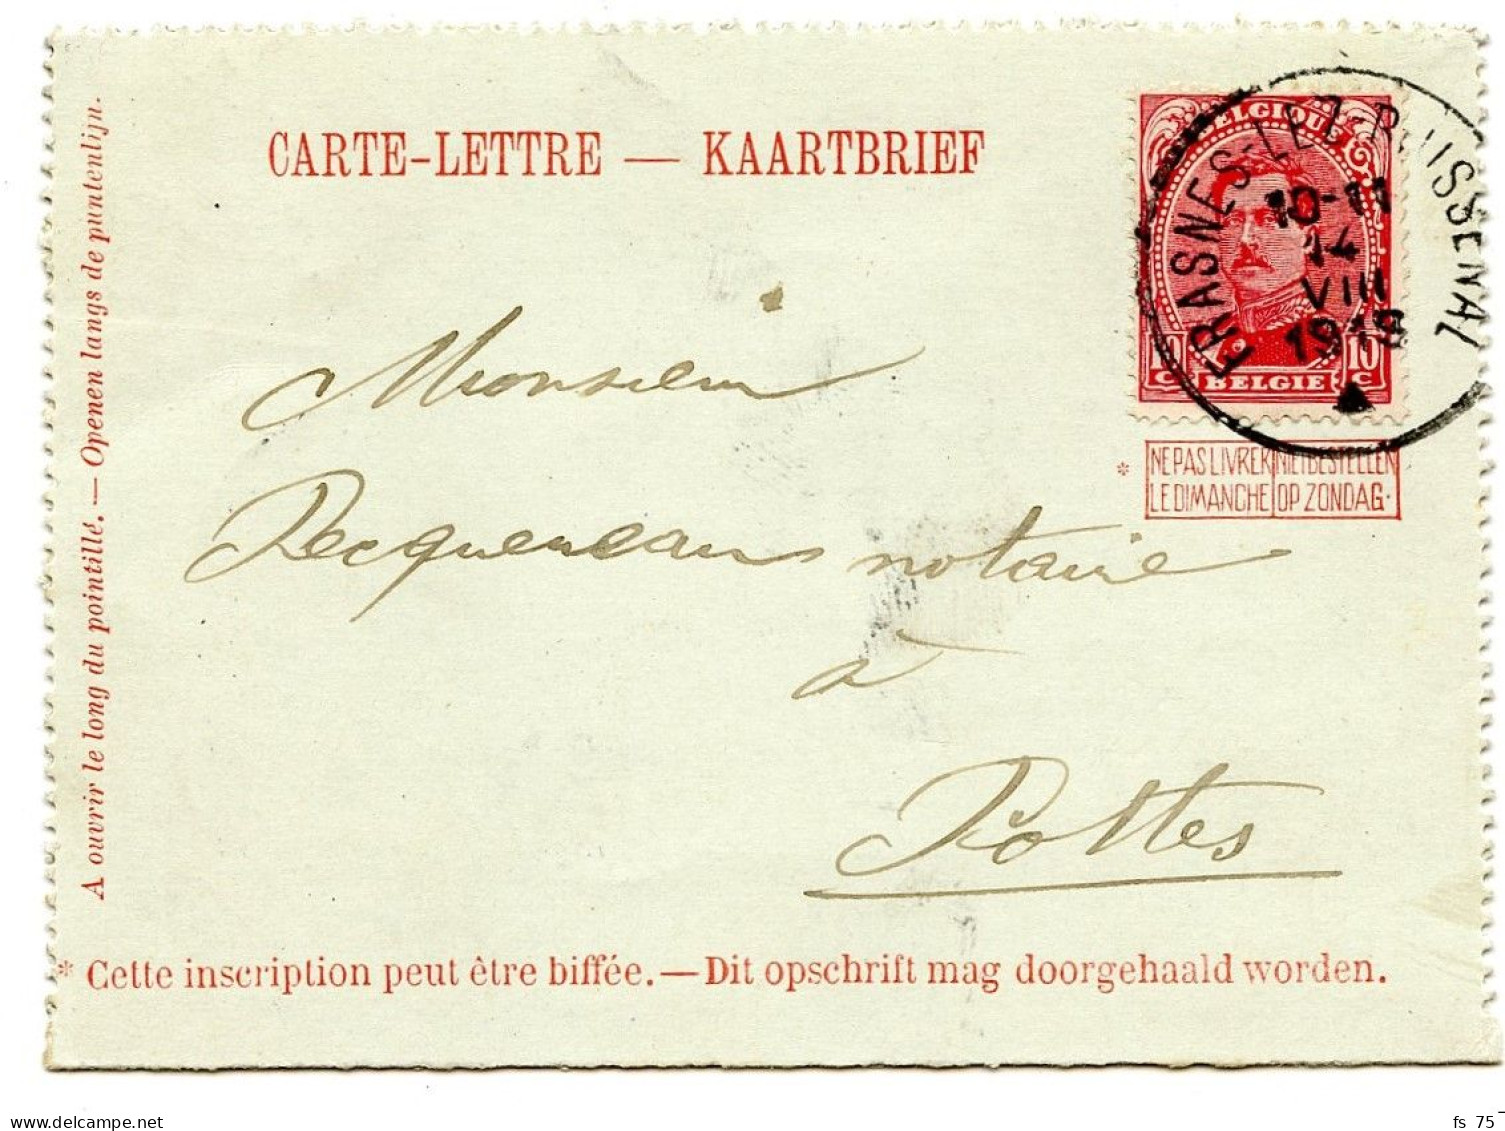 CARTE-LETTRE — KAARTBRIEF
BELGIQUE
FRASNES-LEZ-BUISSENAL
10-11
14
VIII
1919
10 10
C BELGIE C
* NE PAS LIVRER NIET BESTELLEN
LE DIMANCHE OP ZONDAG.
A ouvrir le long du pointillé. — Openen langs de puntenlijn.
Monsieur
notaire
à
Pottes
* Cette inscription peut être biffée. — Dit opschrift mag doorgehaald worden.
delcampe.net
fs 75